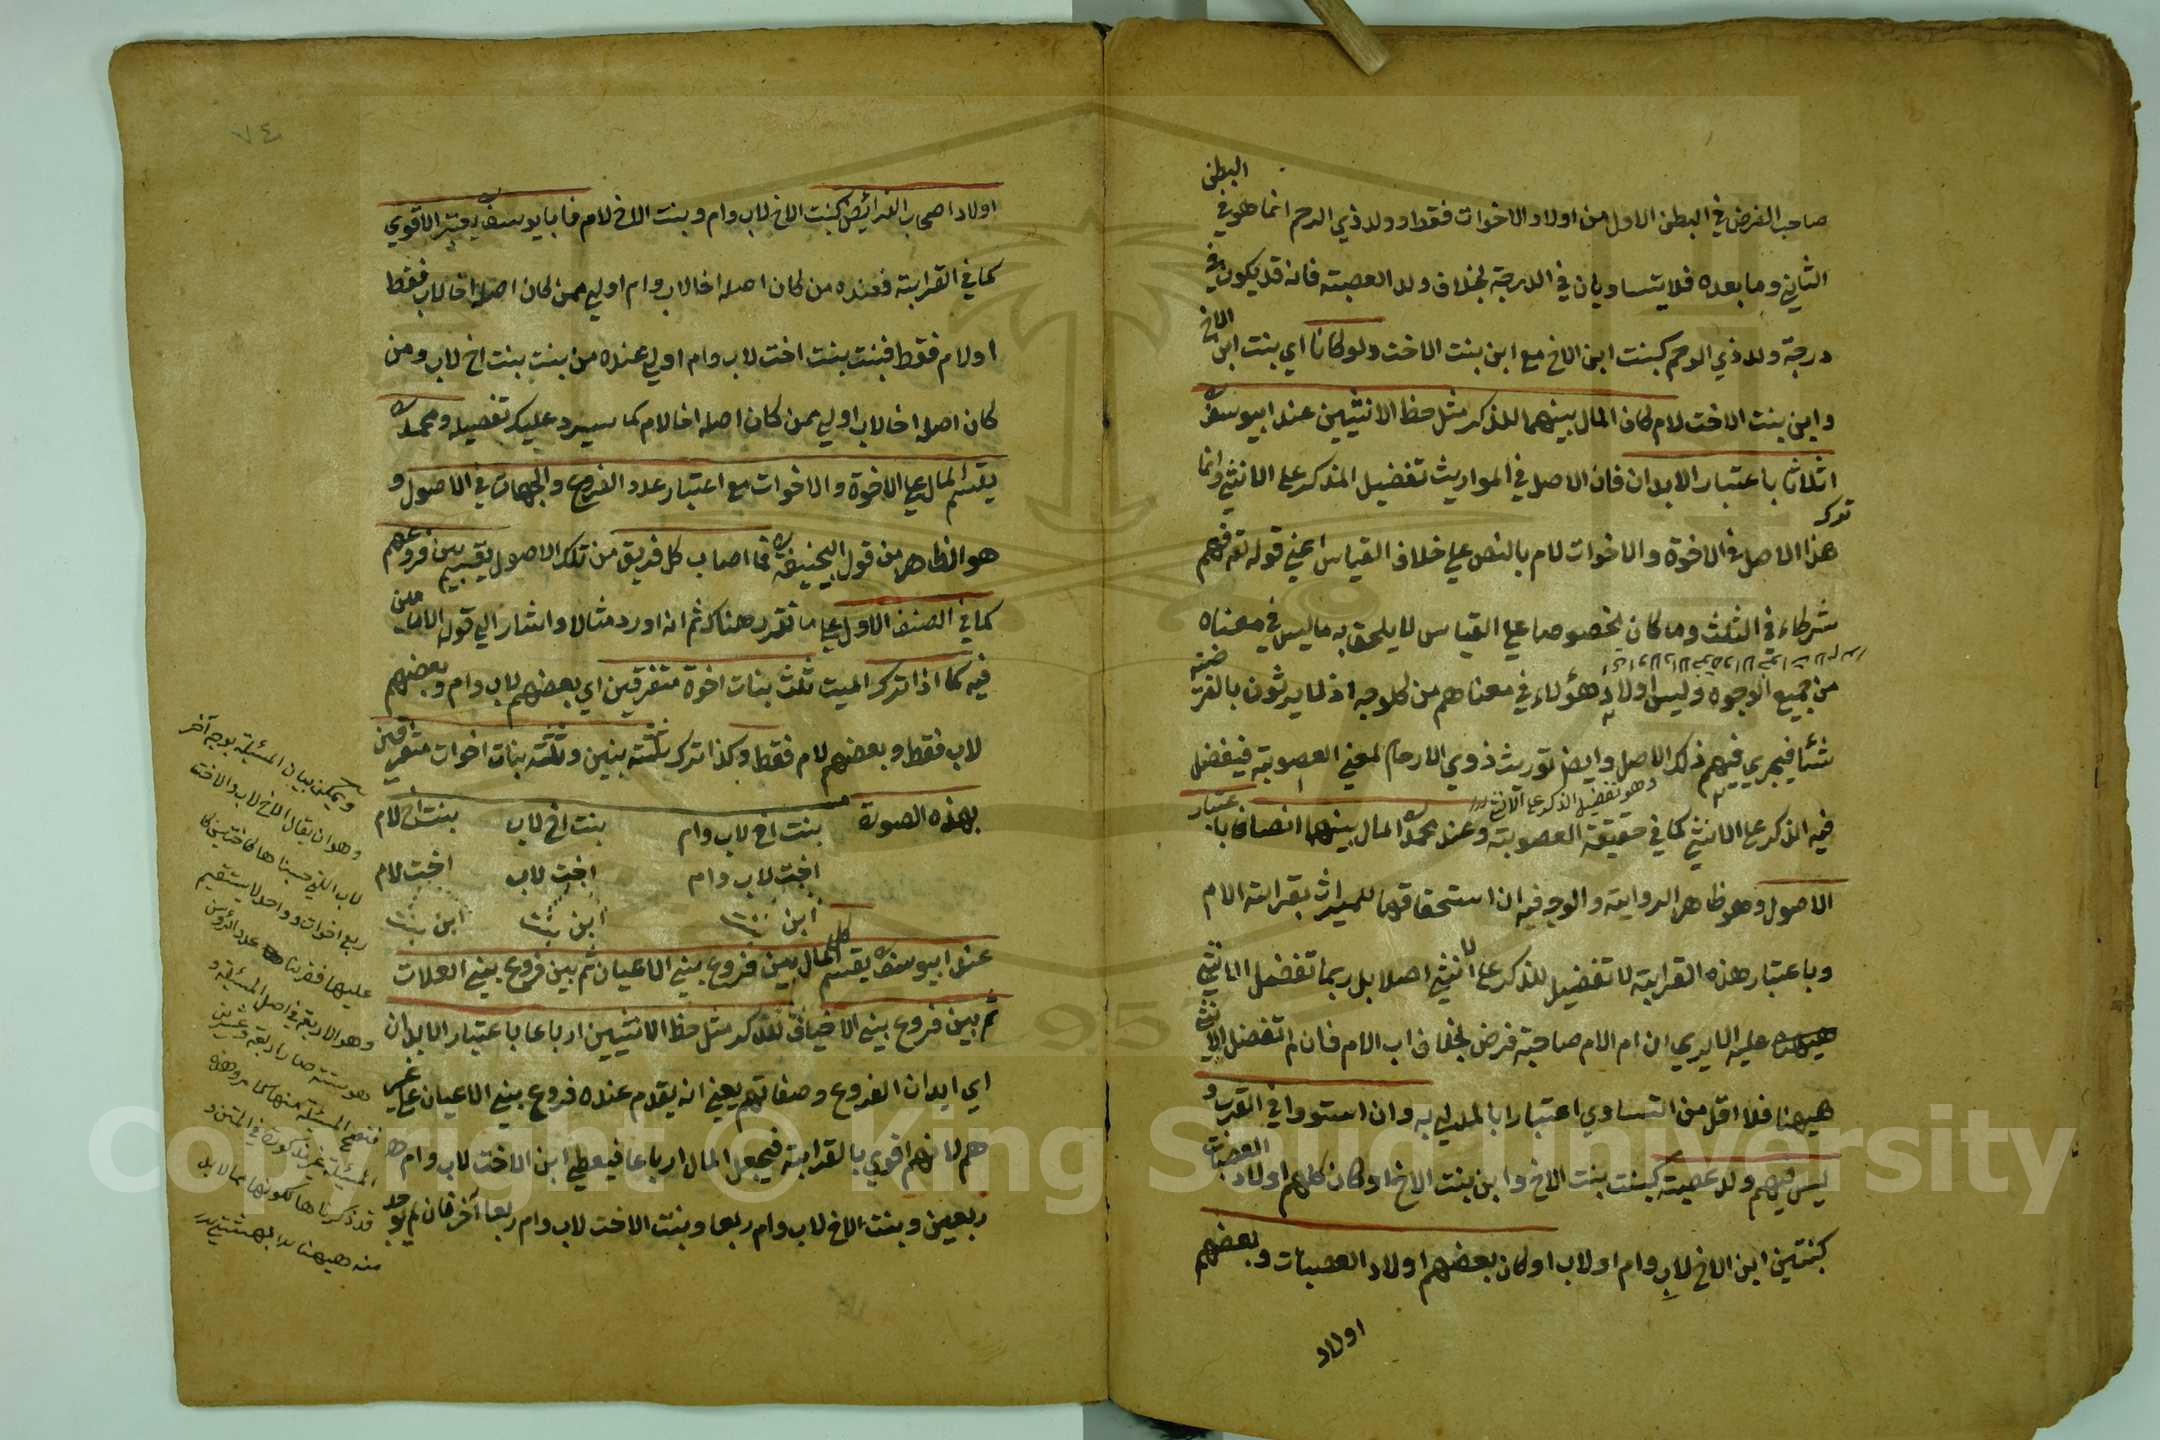 البطن
صاحب الفرض في البطن الاول من اولاد الاخوات فقط وولد ذي الرحم انما هو في
الثاني وما بعده فلا يتساويان في الدرجة بخلاف ولد العصبة فانه قد يكون في
درجة ولد ذي الرحم كبنت ابن الاخ مع ابن بنت الاخت ولو كانا اي بنت ابن الاخ
وابن بنت الاخت لام كان المال بينهما للذكر مثل حظ الانثيين عند ابي يوسف
اثلاثا باعتبار الابدان فان الاصل في المواريث تفضيل المذكر على الانثى وانما
ترك
هذا الاصل في الاخوة والاخوات لام بالنص على خلاف القياس اعني قوله تعـ فهم
شركاء في الثلث وما كان مخصوصا على القياس لا يلحق به ما ليس في معناه
من جميع الوجوه وليس اولاد هؤلاء في معناهم من كل وجه اذ لا يرثون بالفر ضية
شئا فيجري فيهم ذلك الاصل وايضا توريث ذوي الارحام لمعنى العصوبة فيفضل
وهو تفضيل الذكر على الانثى
فيه المذكر على الانثى كما في حقيقة العصوبة وعند محمد المال بينهما انصافا باعتبار
الاصول وهو ظاهر الرواية والوجه فيه ان استحقاقهما للميراث بقرابة الام
وباعتبار هذه القرابة لا تفضيل للذكر على الانثى اصلا بل ربما تفضل الانثى
عليه الا يرى ان ام الام صاحبة فرض بخلاف اب الام فان لم تفضل الانثى
هيهنا فلا اقل من التساوي اعتبارا بالمدلي به وان استووا في القرب و
ليس فيهم ولد عصبة كبنت بنت الاخ وابن بنت الاخ او كان كلهم اولاد العصبات
كبنتين ابن الاخ لاب وام او لاب او كان بعضهم اولاد العصبات وبعضهم
اولاد
٧٤
اولاد اصحاب الفرائض كبنت الاخ لاب وام وبنت الاخ لام فابا يوسف يعتبر الاقوي
كما في القرابة فعنده من كان اصله اخا لاب وام اولى ممن كان اصله اخا لاب فقط
او لام فقط فبنت بنت اخت لاب وام اولى عنده من بنت بنت اخ لاب ومن
كان اصله اخا لاب اولى ممن كان اصله اخا لام كما سيرد عليك تفصيله ومحمد
يقسم المال على الاخوة والاخوات مع اعتبار عدد الفروع والجهات في الاصول و
هو الظاهر من قول ابي حنيفة فما اصاب كل فريق من تلك الاصول يقسم بين فروعهم
كما في الصنف الاول على ما تقرر هناك ثم انه اورد مثالا واشار الي قول الامامين
فيه كما اذا ترك الميت ثلث بنات اخوة متفرقين اي بعضهم لاب وام وبعضهم
لاب فقط وبعضهم لام فقط وكذا ترك ثلثة بنين وثلثة بنات اخوات متفرقين
بهذه الصورة بنت اخ لاب وام بنت اخ لاب بنت اخ لام
اخت لاب وام اخت لاب اخت لام
ابن بنت ابن بنت ابن بنت
عند ابي يوسف يقسم كل المال بين فروع بني الاعيان ثم بين فروع بني العلات
ثم بين فروع بني الاخياف للذكر مثل حظ الانثيين ارباعا باعتبار الابدان
اي ابدان الفروع وصفاتهم يعني انه يقدم عنده فروع بني الاعيان على غير
هم لانهم اقوي بالقرابة فيجعل المال ارباعا فيعطي ابن الاخت لاب وام
ربعين وبنت الاخ لاب وام ربعا وبنت الاخت لاب وام ربعا آخر فان لم يوجد
ويمكن بيان المسئلة بوجه آخر
وهو ان يقال الاخ لاب والاخت
لاب حسبناها كاختين
اربع اخوات وواحد لا يستقيم
عليها فضربنا عدد الرؤس
وهو الاربعة في اصل المسئلة و
هو ستة صار اربعة وعشرين
فتصح المسئلة منها
المسئلة غير مذكورة في المتن و
قد ذكرناها لكونها مما لا بد
منه هيهنا
Copyright © King Saud University
1957